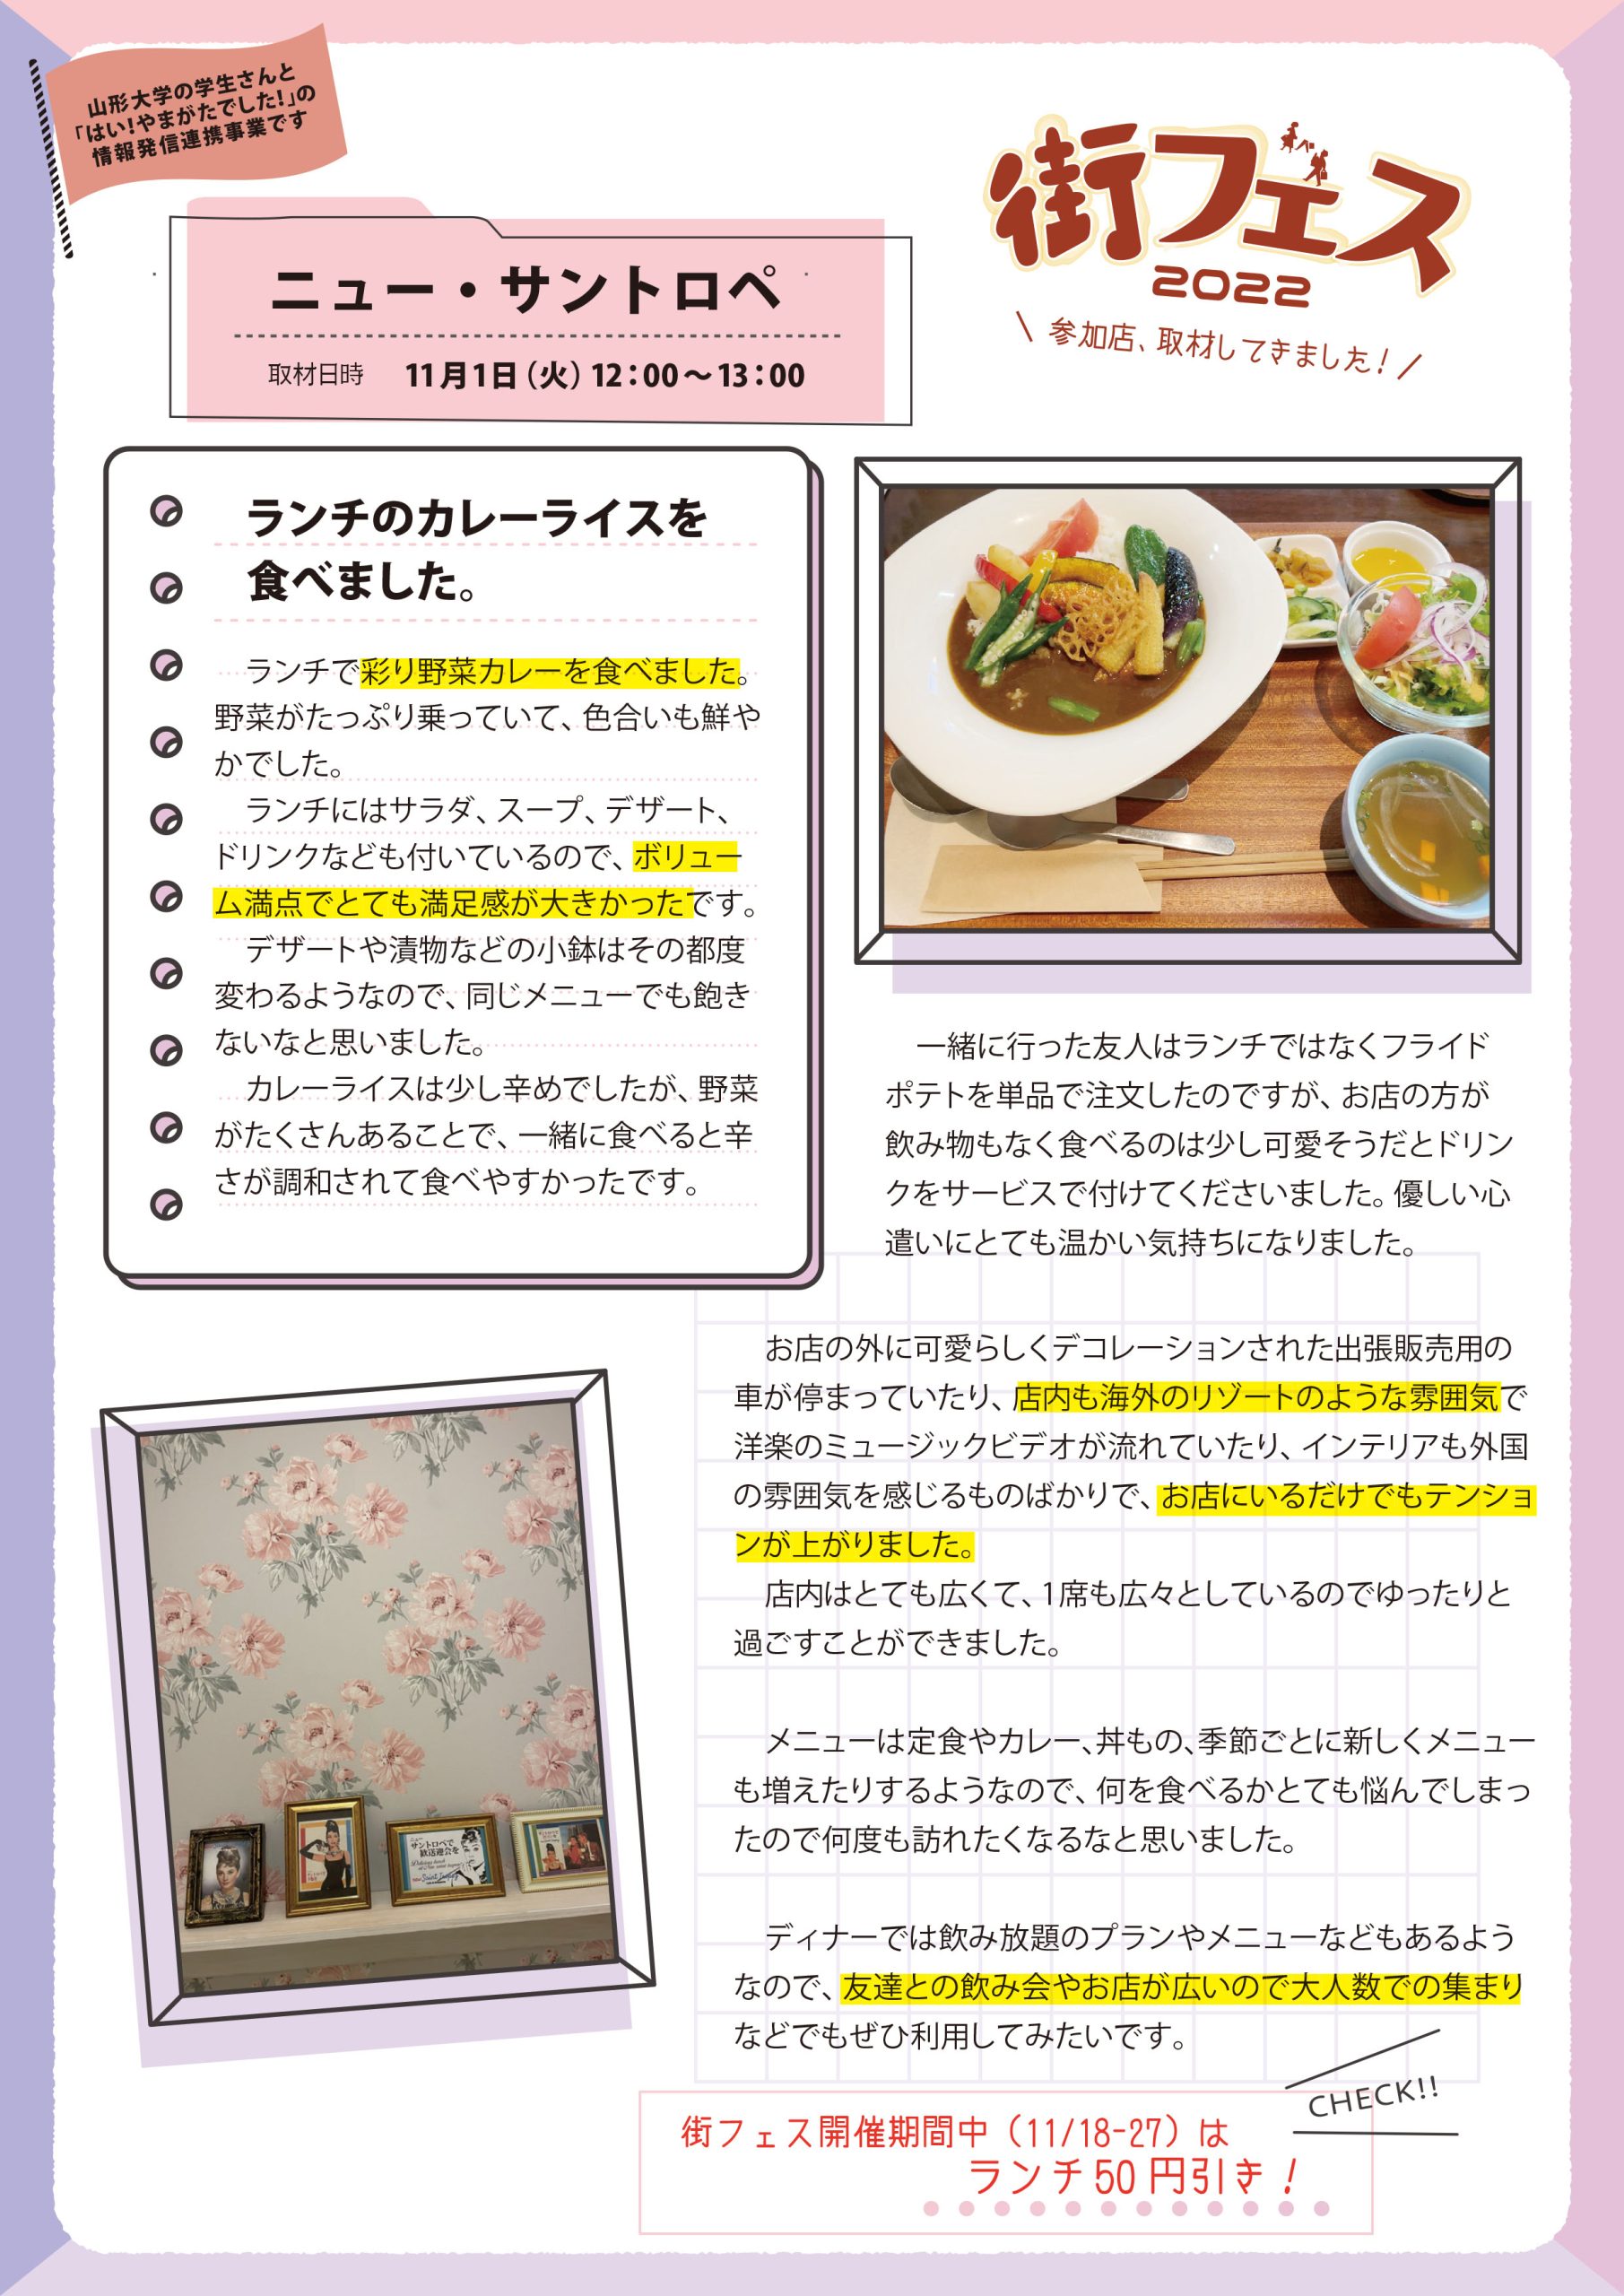 山形大学の学生さんと
「はい！やまがたでした！」の
情報発信連携事業です
街フェス
2022
参加店、取材してきました！
ニュー・サントロペ
取材日時 11月1日（火）12：00〜13：00
ランチのカレーライスを
食べました。
ランチで彩り野菜カレーを食べました。
野菜がたっぷり乗っていて、色合いも鮮や
かでした。
ランチにはサラダ、スープ、デザート、
ドリンクなども付いているので、ボリュー
ム満点でとても満足感が大きかったです。
デザートや漬物などの小鉢はその都度
変わるようなので、同じメニューでも飽き
ないなと思いました。
カレーライスは少し辛めでしたが、野菜
がたくさんあることで、一緒に食べると辛
さが調和されて食べやすかったです。
一緒に行った友人はランチではなくフライド
ポテトを単品で注文したのですが、お店の方が
飲み物もなく食べるのは少し可愛そうだとドリン
クをサービスで付けてくださいました。優しい心
遣いにとても温かい気持ちになりました。
お店の外に可愛らしくデコレーションされた出張販売用の
車が停まっていたり、店内も海外のリゾートのような雰囲気で
洋楽のミュージックビデオが流れていたり、インテリアも外国
の雰囲気を感じるものばかりで、お店にいるだけでもテンショ
ンが上がりました。
店内はとても広くて、1席も広々としているのでゆったりと
過ごすことができました。
メニューは定食やカレー、丼もの、季節ごとに新しくメニュー
も増えたりするようなので、何を食べるかとても悩んでしまっ
たので何度も訪れたくなるなと思いました。
ディナーでは飲み放題のプランやメニューなどもあるよう
なので、友達との飲み会やお店が広いので大人数での集まり
などでもぜひ利用してみたいです。
ニュー
サントロペで
歓送迎会を
CHECK!!
街フェス開催期間中（11/18-27）は
ランチ50円引き！